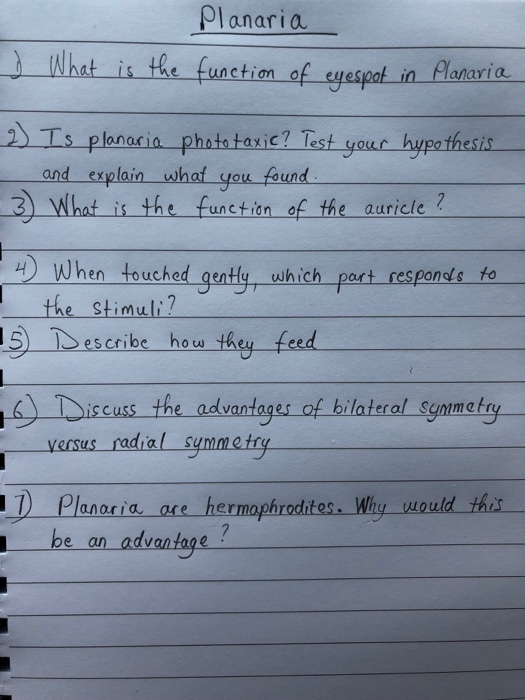 Planaria
1) What is the function of eyespot in Planaria
2) Is planaria phototaxic? Test your hypothesis
and explain what you found.
3) What is the function of the auricle?
4) When touched gently, which part responds to
the stimuli?
5) Describe how they feed
6) Discuss the advantages of bilateral symmetry
versus radial symmetry
7) Planaria are hermaphrodites. Why would this
be an advantage?